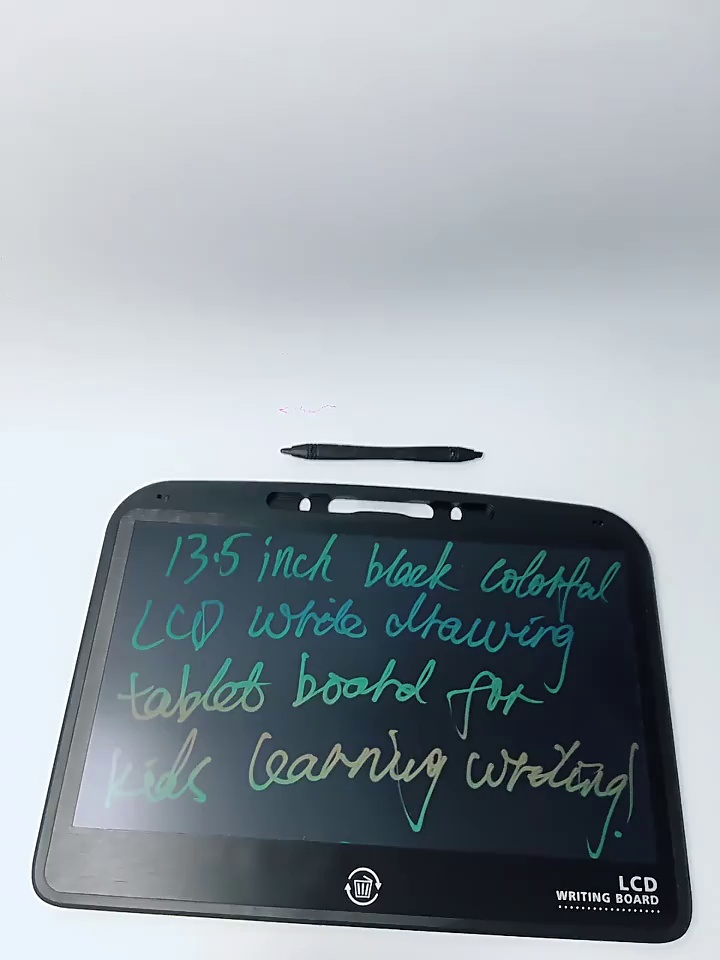 13.5 inch black colorful
LCD write drawing
tablet board for
kids learning writing!
LCD
WRITING BOARD